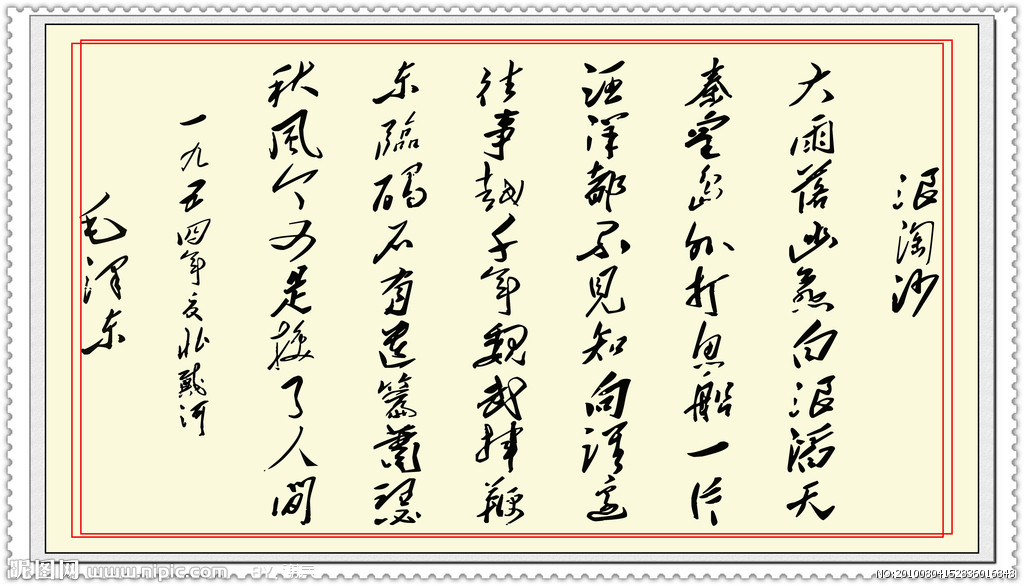 浪淘沙
大雨落幽燕白浪滔天
秦皇岛外打鱼船一片
汪洋都不見知向谁边
往事越千年魏武挥鞭
东臨碣石有遗篇蕭瑟
秋风今又是换了人间
一九五四年夏北戴河
毛泽东
昵图网 www.nipic.com BY:
NO:20100804152836016848